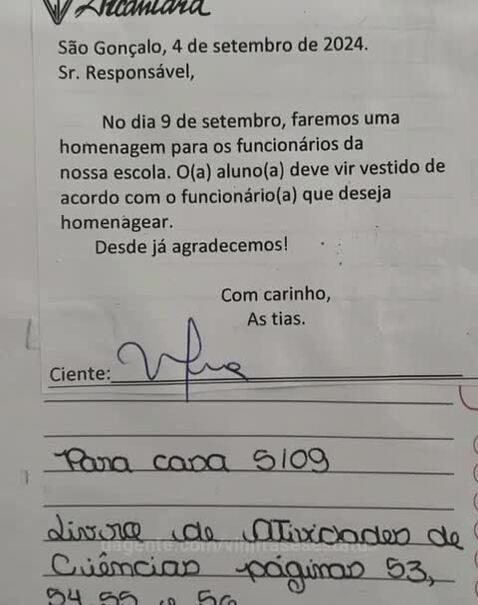 Alcântara
São Gonçalo, 4 de setembro de 2024.
Sr. Responsável,
No dia 9 de setembro, faremos uma
homenagem para os funcionários da
nossa escola. O(a) aluno(a) deve vir vestido de
acordo com o funcionário(a) que deseja
homenagear.
Desde já agradecemos!
Com carinho,
As tias.
Ciente:
Para casa 5/09
Livro de Atividades de
Ciências páginas 53,
54, 55 e 56